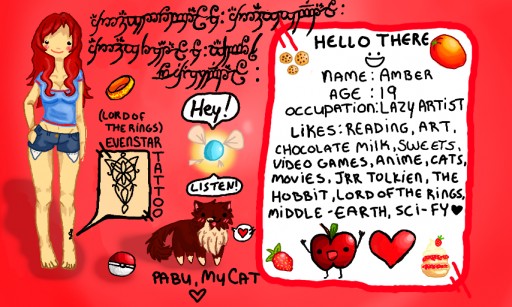 HELLO THERE
NAME: AMBER
AGE: 19
OCCUPATION: LAZY ARTIST
LIKES: READING, ART,
CHOCOLATE MILK, SWEETS,
VIDEO GAMES, ANIME, CATS,
MOVIES, JRR TOLKIEN, THE
HOBBIT, LORD OF THE RINGS,
MIDDLE-EARTH, SCI-FY♥
(LORD OF
THE RINGS)
EVENSTAR
TATTOO
Hey!
LISTEN!
PABU, MY CAT